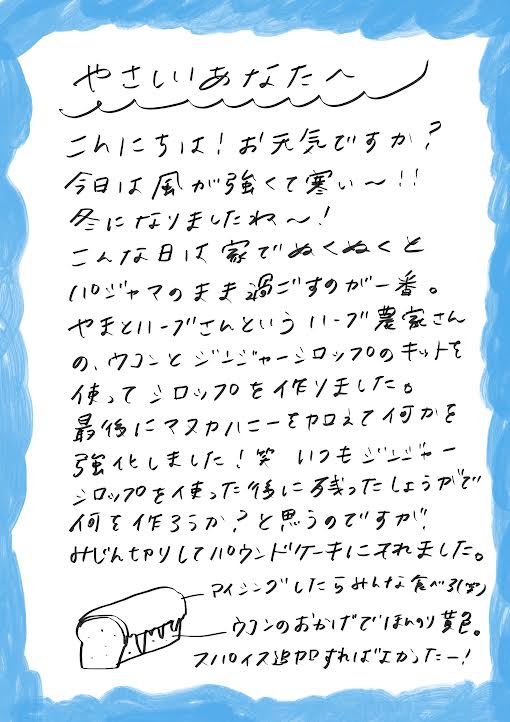 やさしいあなたへ
こんにちは！お元気ですか？
今日は風が強くて寒い〜！！
冬になりましたね〜！
こんな日は家でぬくぬくと
パジャマのまま過ごすのが一番。
やまとハーブさんというハーブ農家さん
の、ウコンとジンジャーシロップのキットを
使ってシロップを作りました。
最後にマヌカハニーを加えて何かを
強化しました！笑 いつもジンジャー
シロップを使った後に残ったしょうがで
何を作ろうか？と思うのですが
みじん切りしてパウンドケーキにそれました。
アイシングしたらみんな食べる(笑)
ウコンのおかげでほんのり黄色。
スパイス追加すればよかったー！